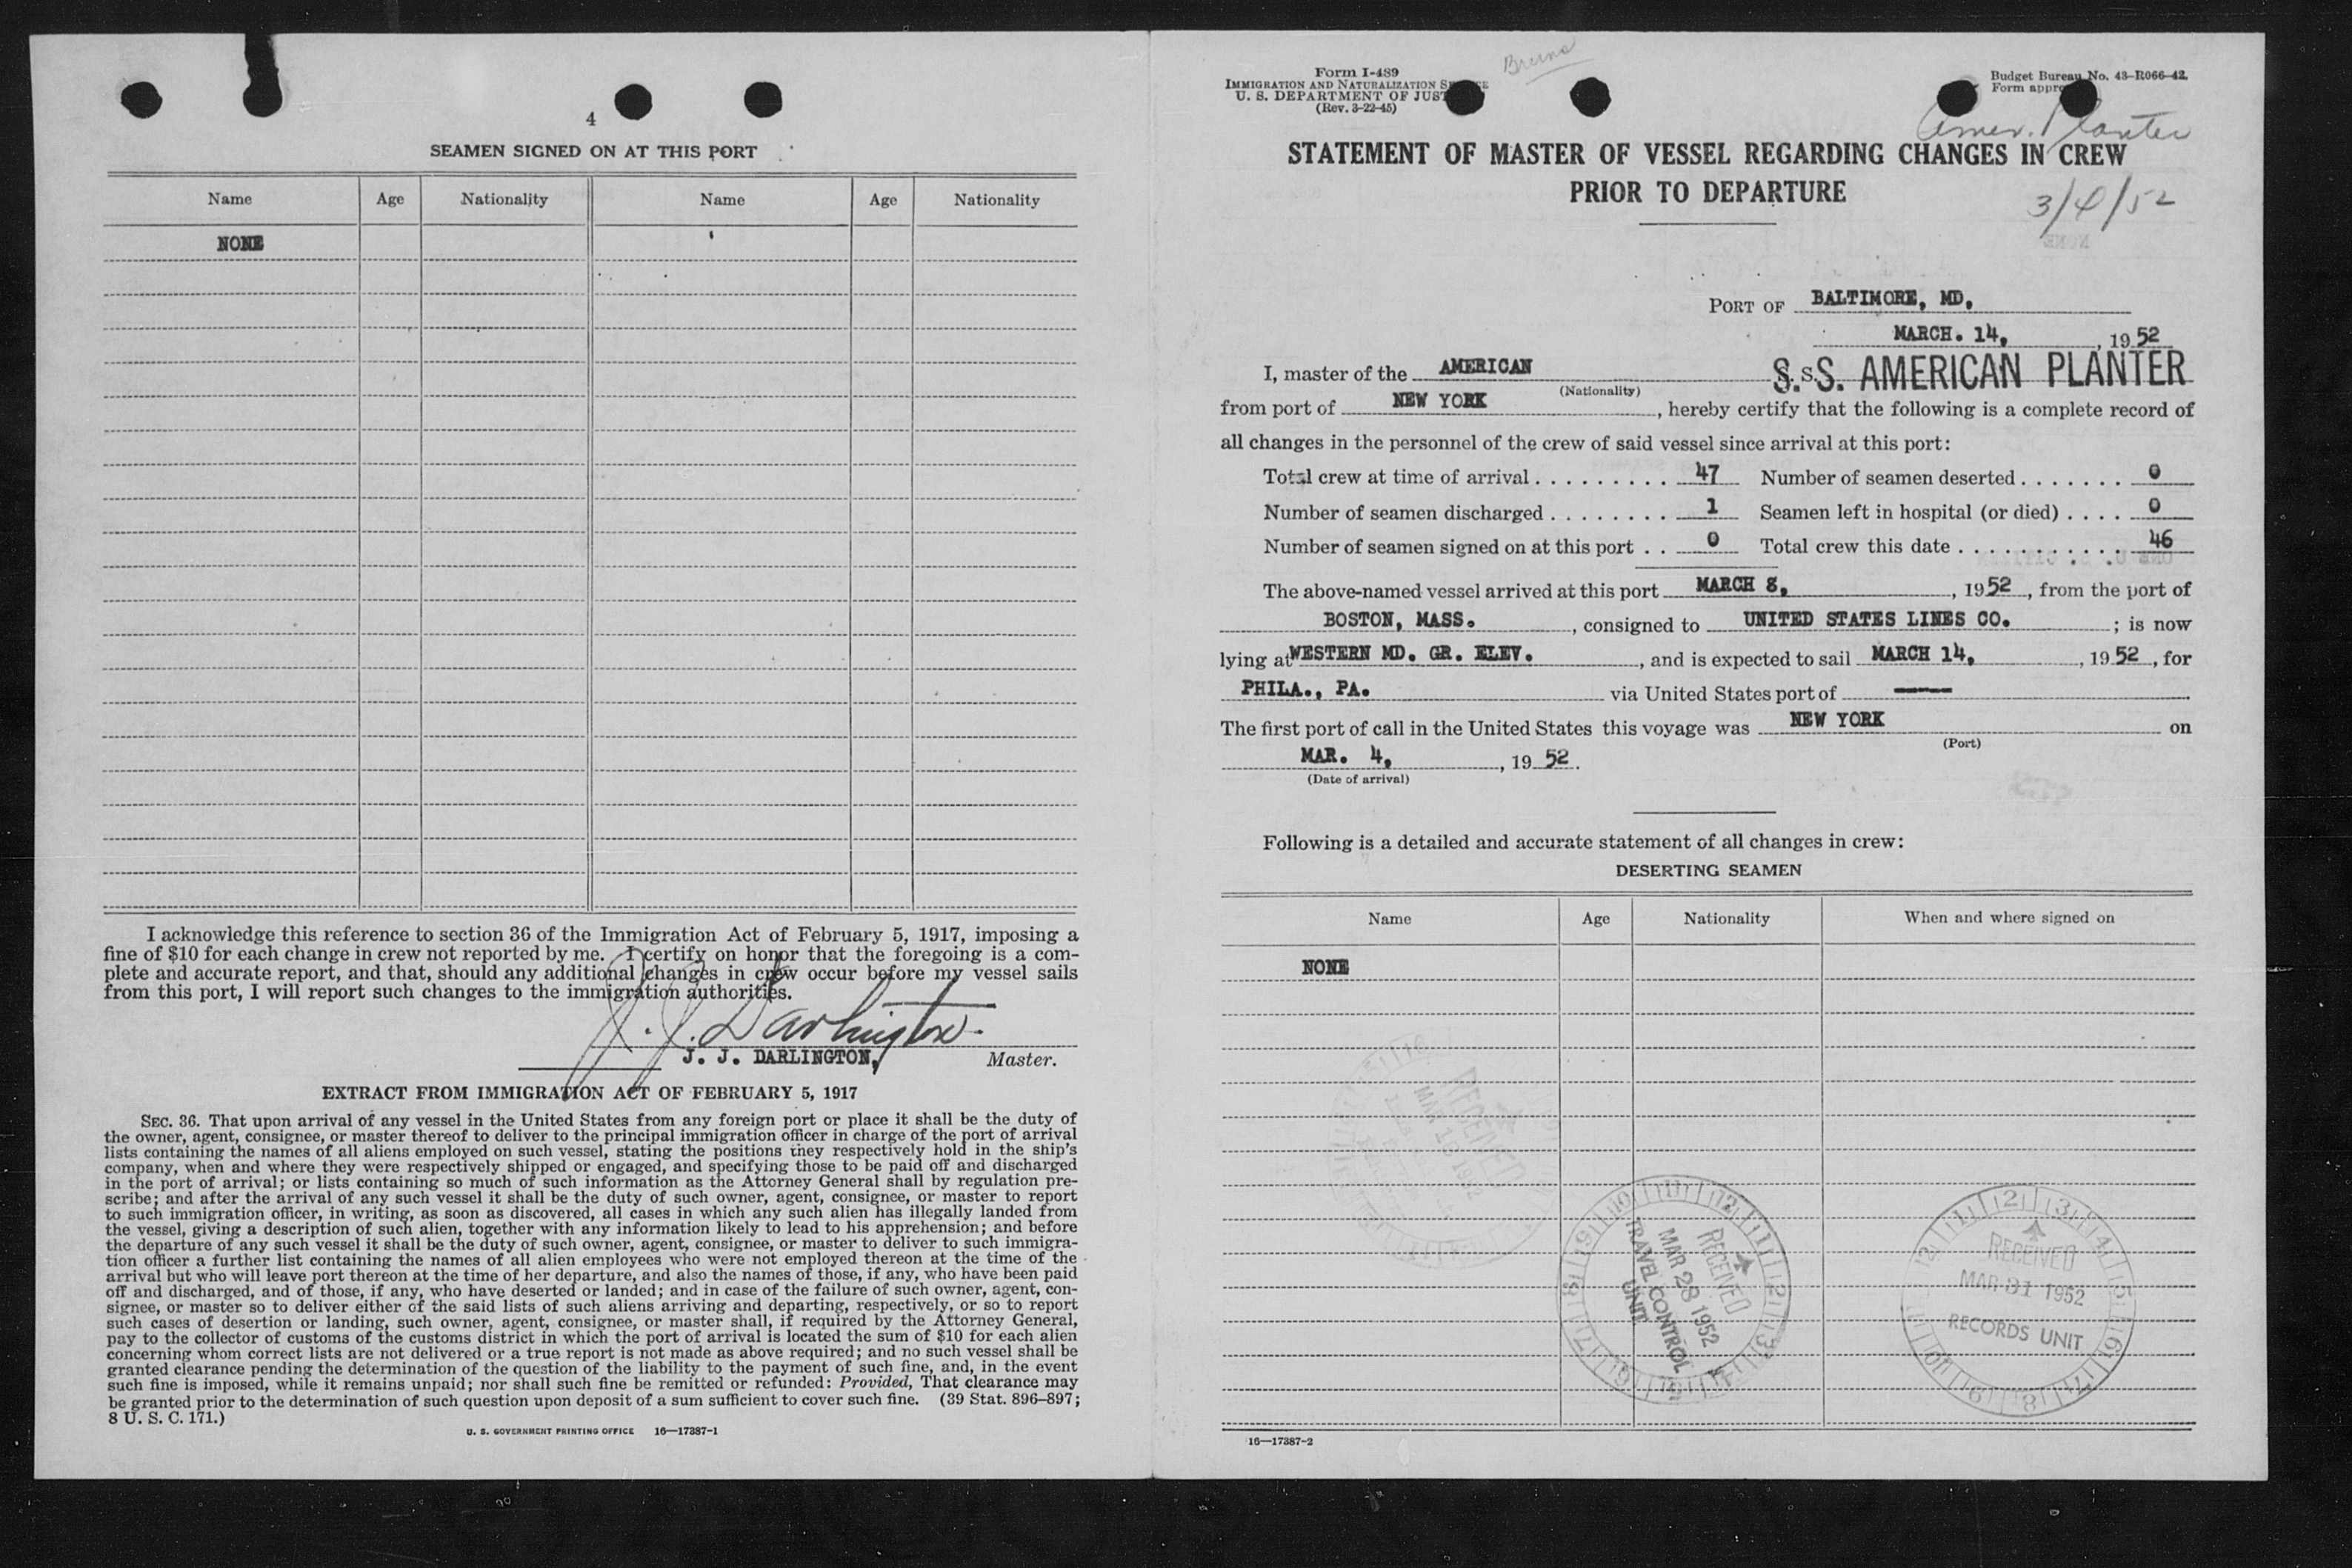 4
SEAMEN SIGNED ON AT THIS PORT
Name Age Nationality Name Age Nationality
NONE
I acknowledge this reference to section 36 of the Immigration Act of February 5, 1917, imposing a
fine of $10 for each change in crew not reported by me. I certify on honor that the foregoing is a com-
plete and accurate report, and that, should any additional changes in crew occur before my vessel sails
from this port, I will report such changes to the immigration authorities.
J. J. Darlington
J. J. DARLINGTON, Master.
EXTRACT FROM IMMIGRATION ACT OF FEBRUARY 5, 1917
SEC. 36. That upon arrival of any vessel in the United States from any foreign port or place it shall be the duty of
the owner, agent, consignee, or master thereof to deliver to the principal immigration officer in charge of the port of arrival
lists containing the names of all aliens employed on such vessel, stating the positions they respectively hold in the ship's
company, when and where they were respectively shipped or engaged, and specifying those to be paid off and discharged
in the port of arrival; or lists containing so much of such information as the Attorney General shall by regulation pre-
scribe; and after the arrival of any such vessel it shall be the duty of such owner, agent, consignee, or master to report
to such immigration officer, in writing, as soon as discovered, all cases in which any such alien has illegally landed from
the vessel, giving a description of such alien, together with any information likely to lead to his apprehension; and before
the departure of any such vessel it shall be the duty of such owner, agent, consignee, or master to deliver to such immigra-
tion officer a further list containing the names of all alien employees who were not employed thereon at the time of the
arrival but who will leave port thereon at the time of her departure, and also the names of those, if any, who have been paid
off and discharged, and of those, if any, who have deserted or landed; and in case of the failure of such owner, agent, con-
signee, or master so to deliver either of the said lists of such aliens arriving and departing, respectively, or so to report
such cases of desertion or landing, such owner, agent, consignee, or master shall, if required by the Attorney General,
pay to the collector of customs of the customs district in which the port of arrival is located the sum of $10 for each alien
concerning whom correct lists are not delivered or a true report is not made as above required; and no such vessel shall be
granted clearance pending the determination of the question of the liability to the payment of such fine, and, in the event
such fine is imposed, while it remains unpaid; nor shall such fine be remitted or refunded: Provided, That clearance may
be granted prior to the determination of such question upon deposit of a sum sufficient to cover such fine. (39 Stat. 896–897;
8 U. S. C. 171.)
U. S. GOVERNMENT PRINTING OFFICE 16—17387-1
Form I-489
IMMIGRATION AND NATURALIZATION
U. S. DEPARTMENT OF
(Rev. 3-22-45)
Budget Bureau No. 43–R066–42.
Form
Amer. Planter
STATEMENT OF MASTER OF VESSEL REGARDING CHANGES IN CREW
PRIOR TO DEPARTURE
3/4/52
PORT OF BALTIMORE, MD.
MARCH. 14, , 1952
I, master of the AMERICAN S. S. S.S. AMERICAN PLANTER
(Nationality)
from port of NEW YORK , hereby certify that the following is a complete record of
all changes in the personnel of the crew of said vessel since arrival at this port:
Total crew at time of arrival . . . . . . . . . 47 Number of seamen deserted . . . . . . . 0
Number of seamen discharged . . . . . . . . 1 Seamen left in hospital (or died) . . . . 0
Number of seamen signed on at this port . . 0 Total crew this date . . . . . . . . . . . 46
The above-named vessel arrived at this port MARCH 8, , 1952 , from the port of
BOSTON, MASS. , consigned to UNITED STATES LINES CO. ; is now
lying at WESTERN MD. GR. ELEV. , and is expected to sail MARCH 14, , 1952 , for
PHILA., PA. via United States port of —
The first port of call in the United States this voyage was NEW YORK on
(Port)
MAR. 4, , 1952.
(Date of arrival)
Following is a detailed and accurate statement of all changes in crew:
DESERTING SEAMEN
Name Age Nationality When and where signed on
NONE
RECEIVED
MAR 28 1952
TRAVEL CONTROL
UNIT
RECEIVED
MAR 31 1952
RECORDS UNIT
16—17387-2